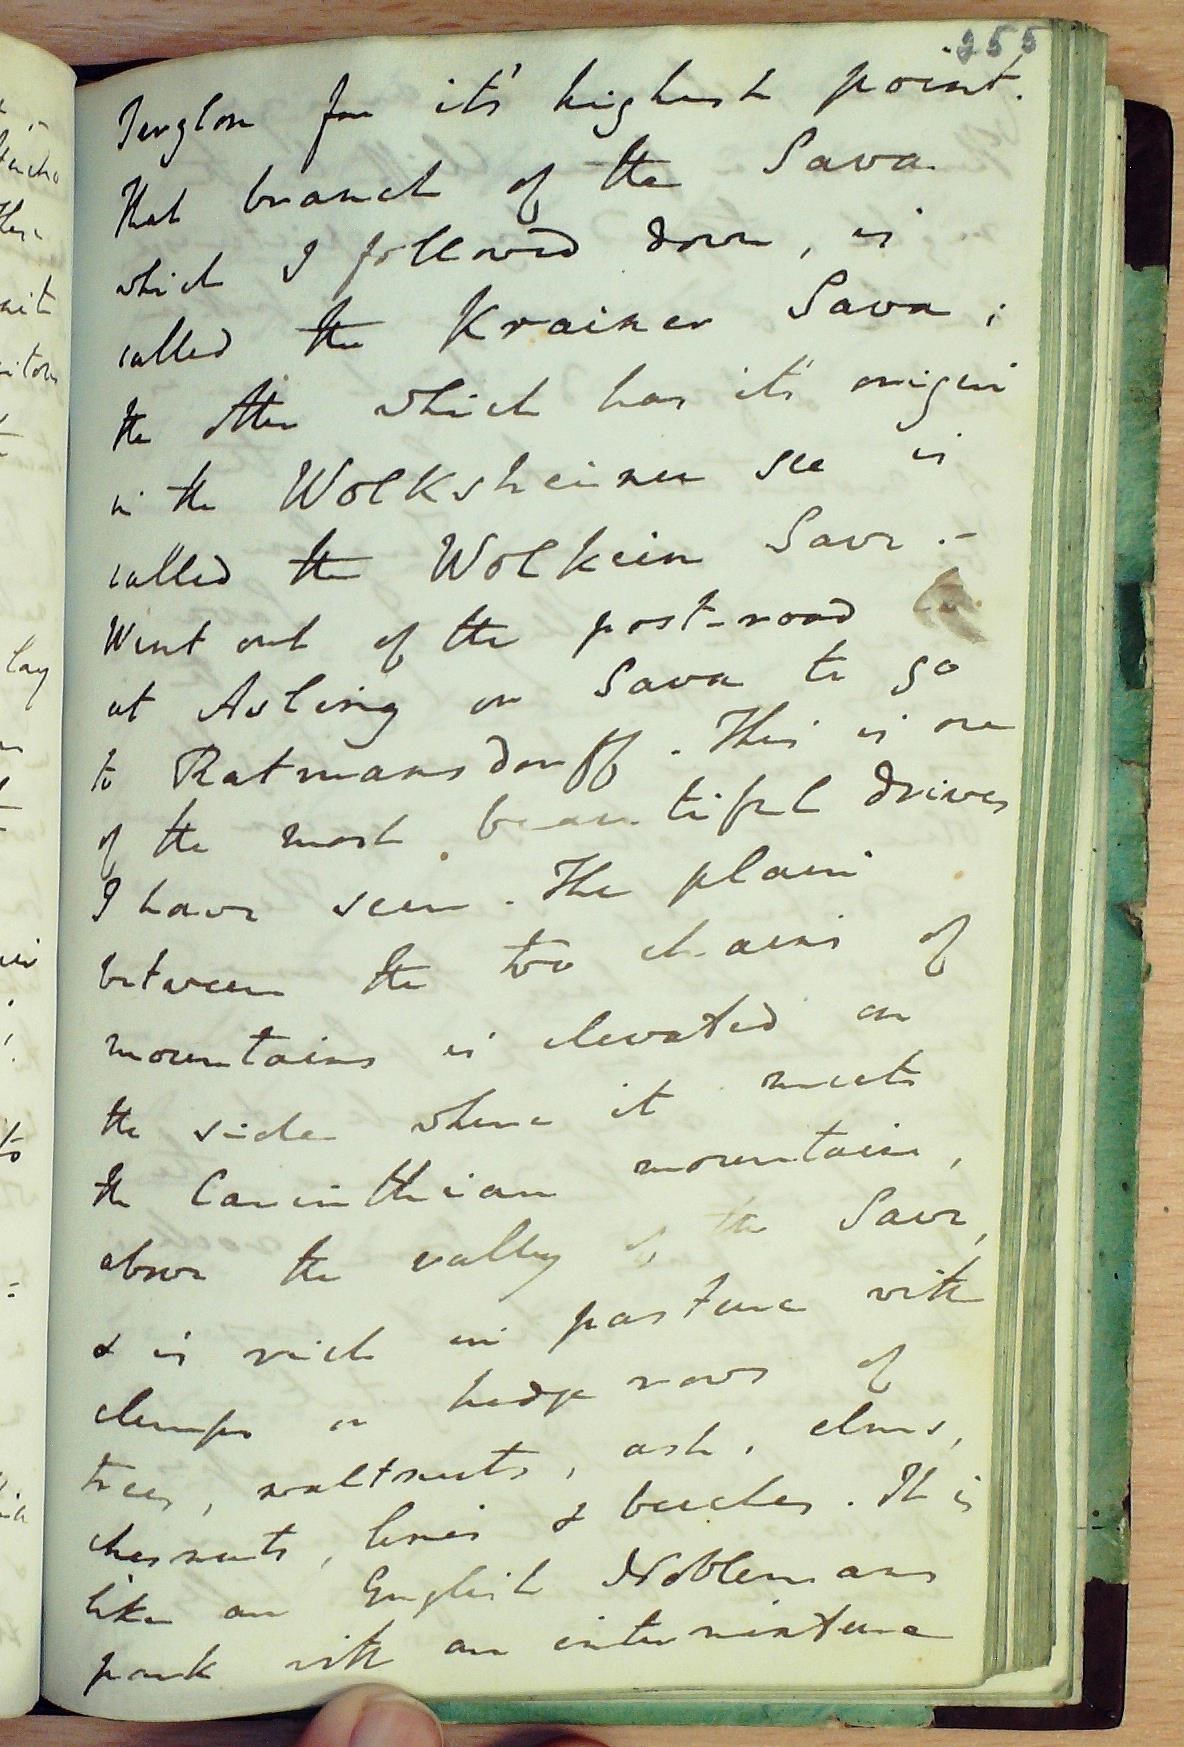 255
Terglou for it's highest point.
That branch of the Sava
which I followed down, is
called the Krainer Sava;
the other which has it's origin
in the Wolksheiner see is
called the Wolkein Save.-
Went out of the post-road
at Asling or Sava to go
to Ratmansdorff. This is one
of the most beautiful drives
I have seen. The plain
between the two chains of
mountains is elevated on
the side where it meets
the Carinthian mountain,
above the valley of the Save,
& is rich in pasture with
clumps or hedge rows of
trees, waltnuts, ash, elms,
chesnuts, limes & beeches. It is
like an English Noblemans
park with an intermixture